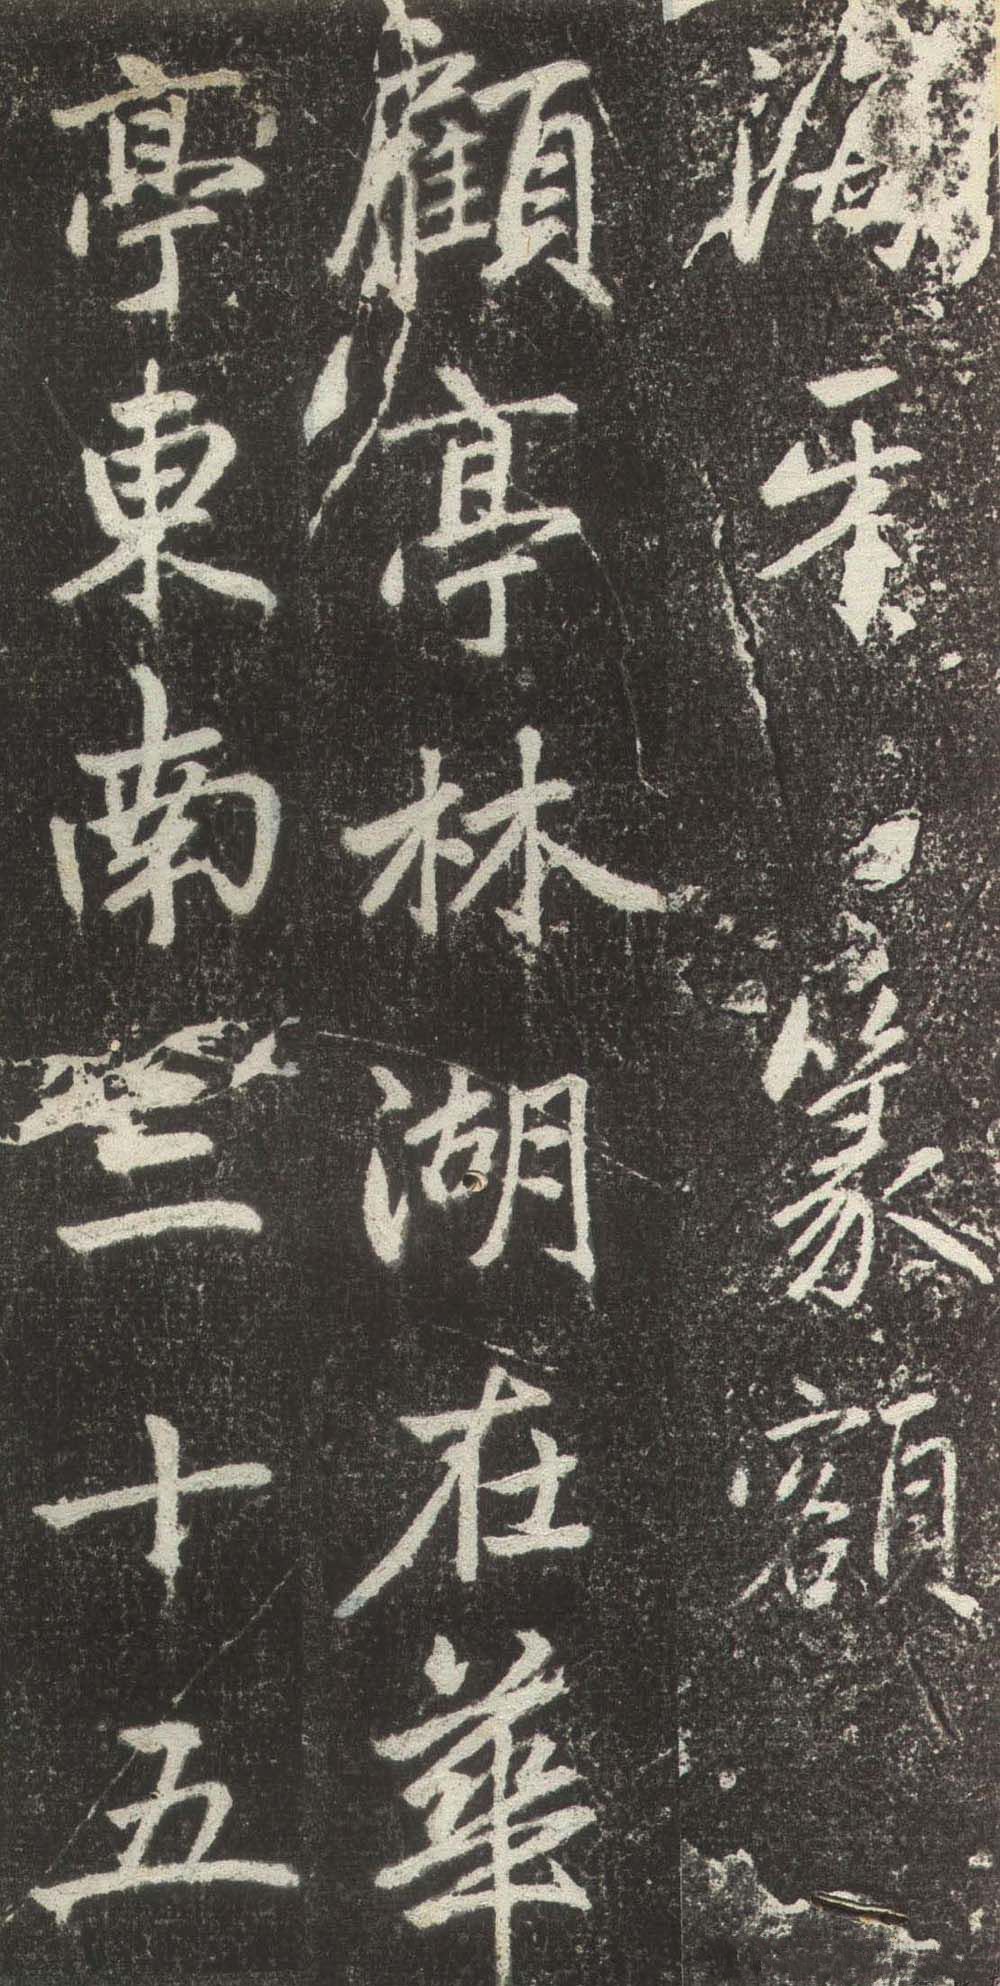 篆額
顧亭林湖在華
亭東南三十五